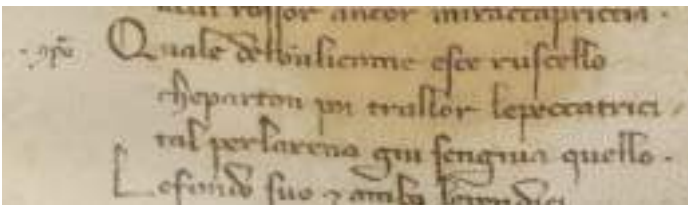 cui rossor ancor miraccapriccia .
Quale delbulicame esce ruscello
cheparton poi tralor lepeccatrici
tal perlarena giu sengiua quello .
Lofondo suo ⁊ amb lependici